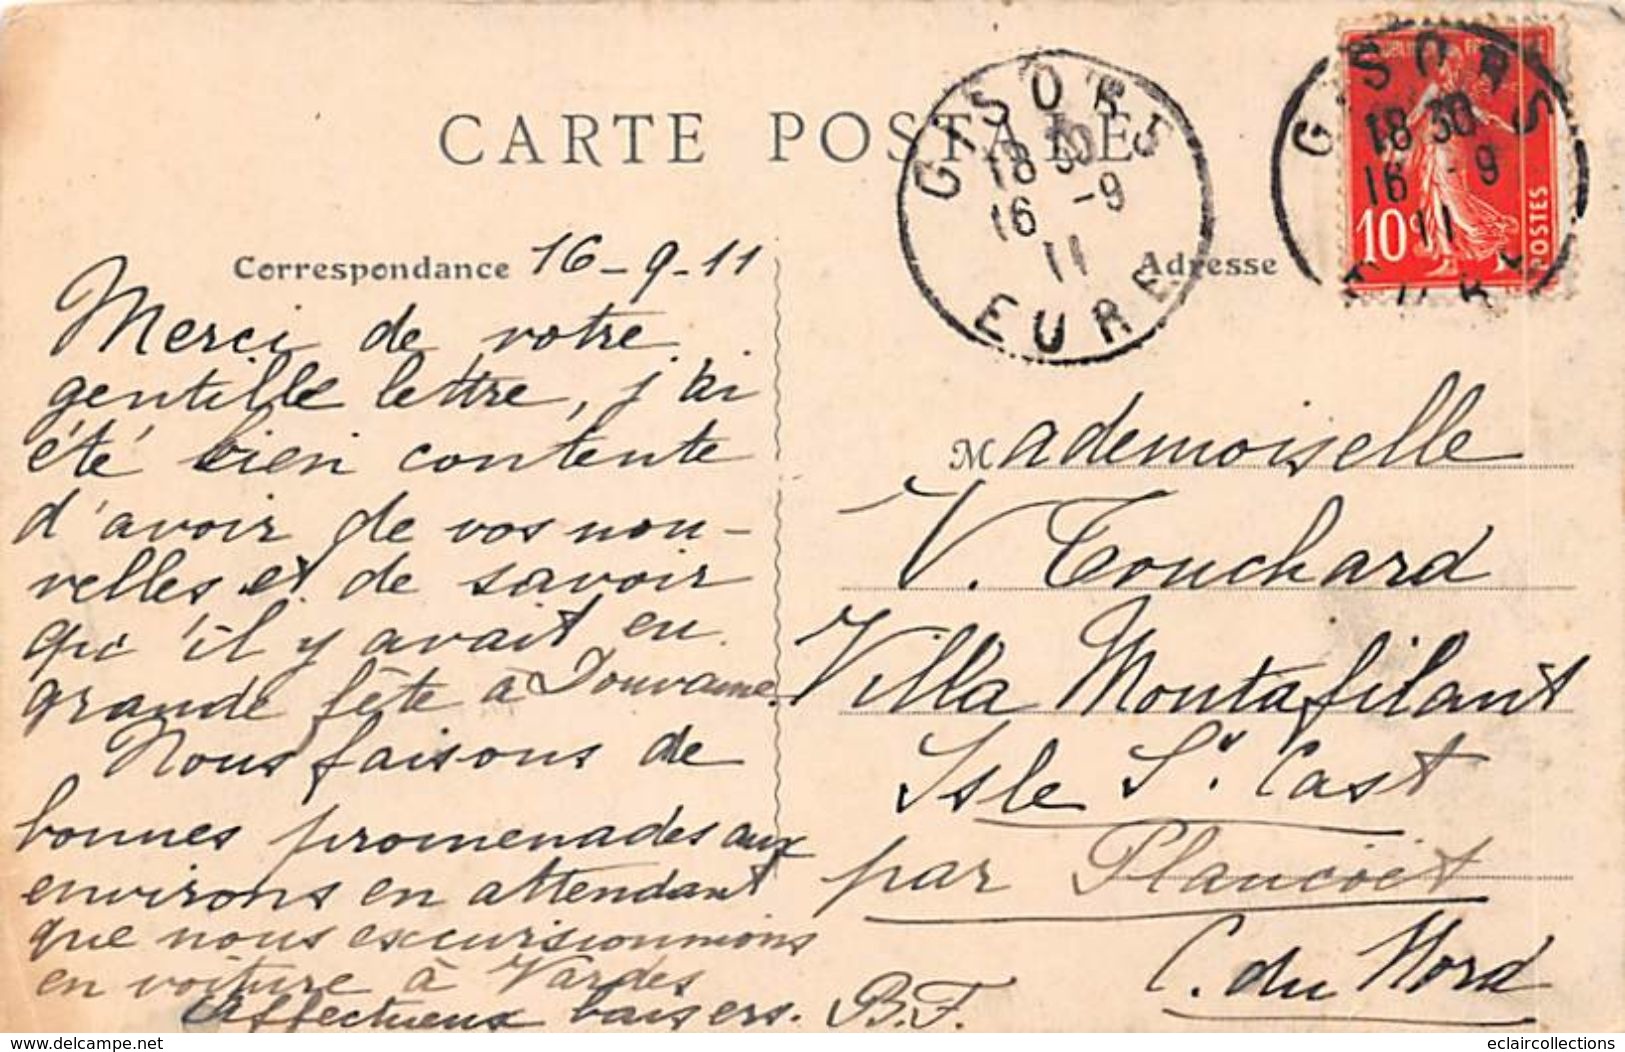 CARTE POSTALE
GISORS
18 30
16 -9
11
EURE
GISORS
18 30
16 -9
11
EURE
10c
POSTES
Correspondance 16-9-11
Adresse
Merci de votre
gentille lettre, j'ai
été bien contente
d'avoir de vos nou-
velles et de savoir
qu'il y avait eu
grande fête à Douvaine.
Nous faisons de
bonnes promenades aux
environs en attendant
que nous excursionnions
en voiture à Vardes
Affectueux baisers. B.F.
Mademoiselle
V. Touchard
Villa Montafilant
Isle St. Cast
par Plancoët
C. du Nord
www.delcampe.net
eclaircollections